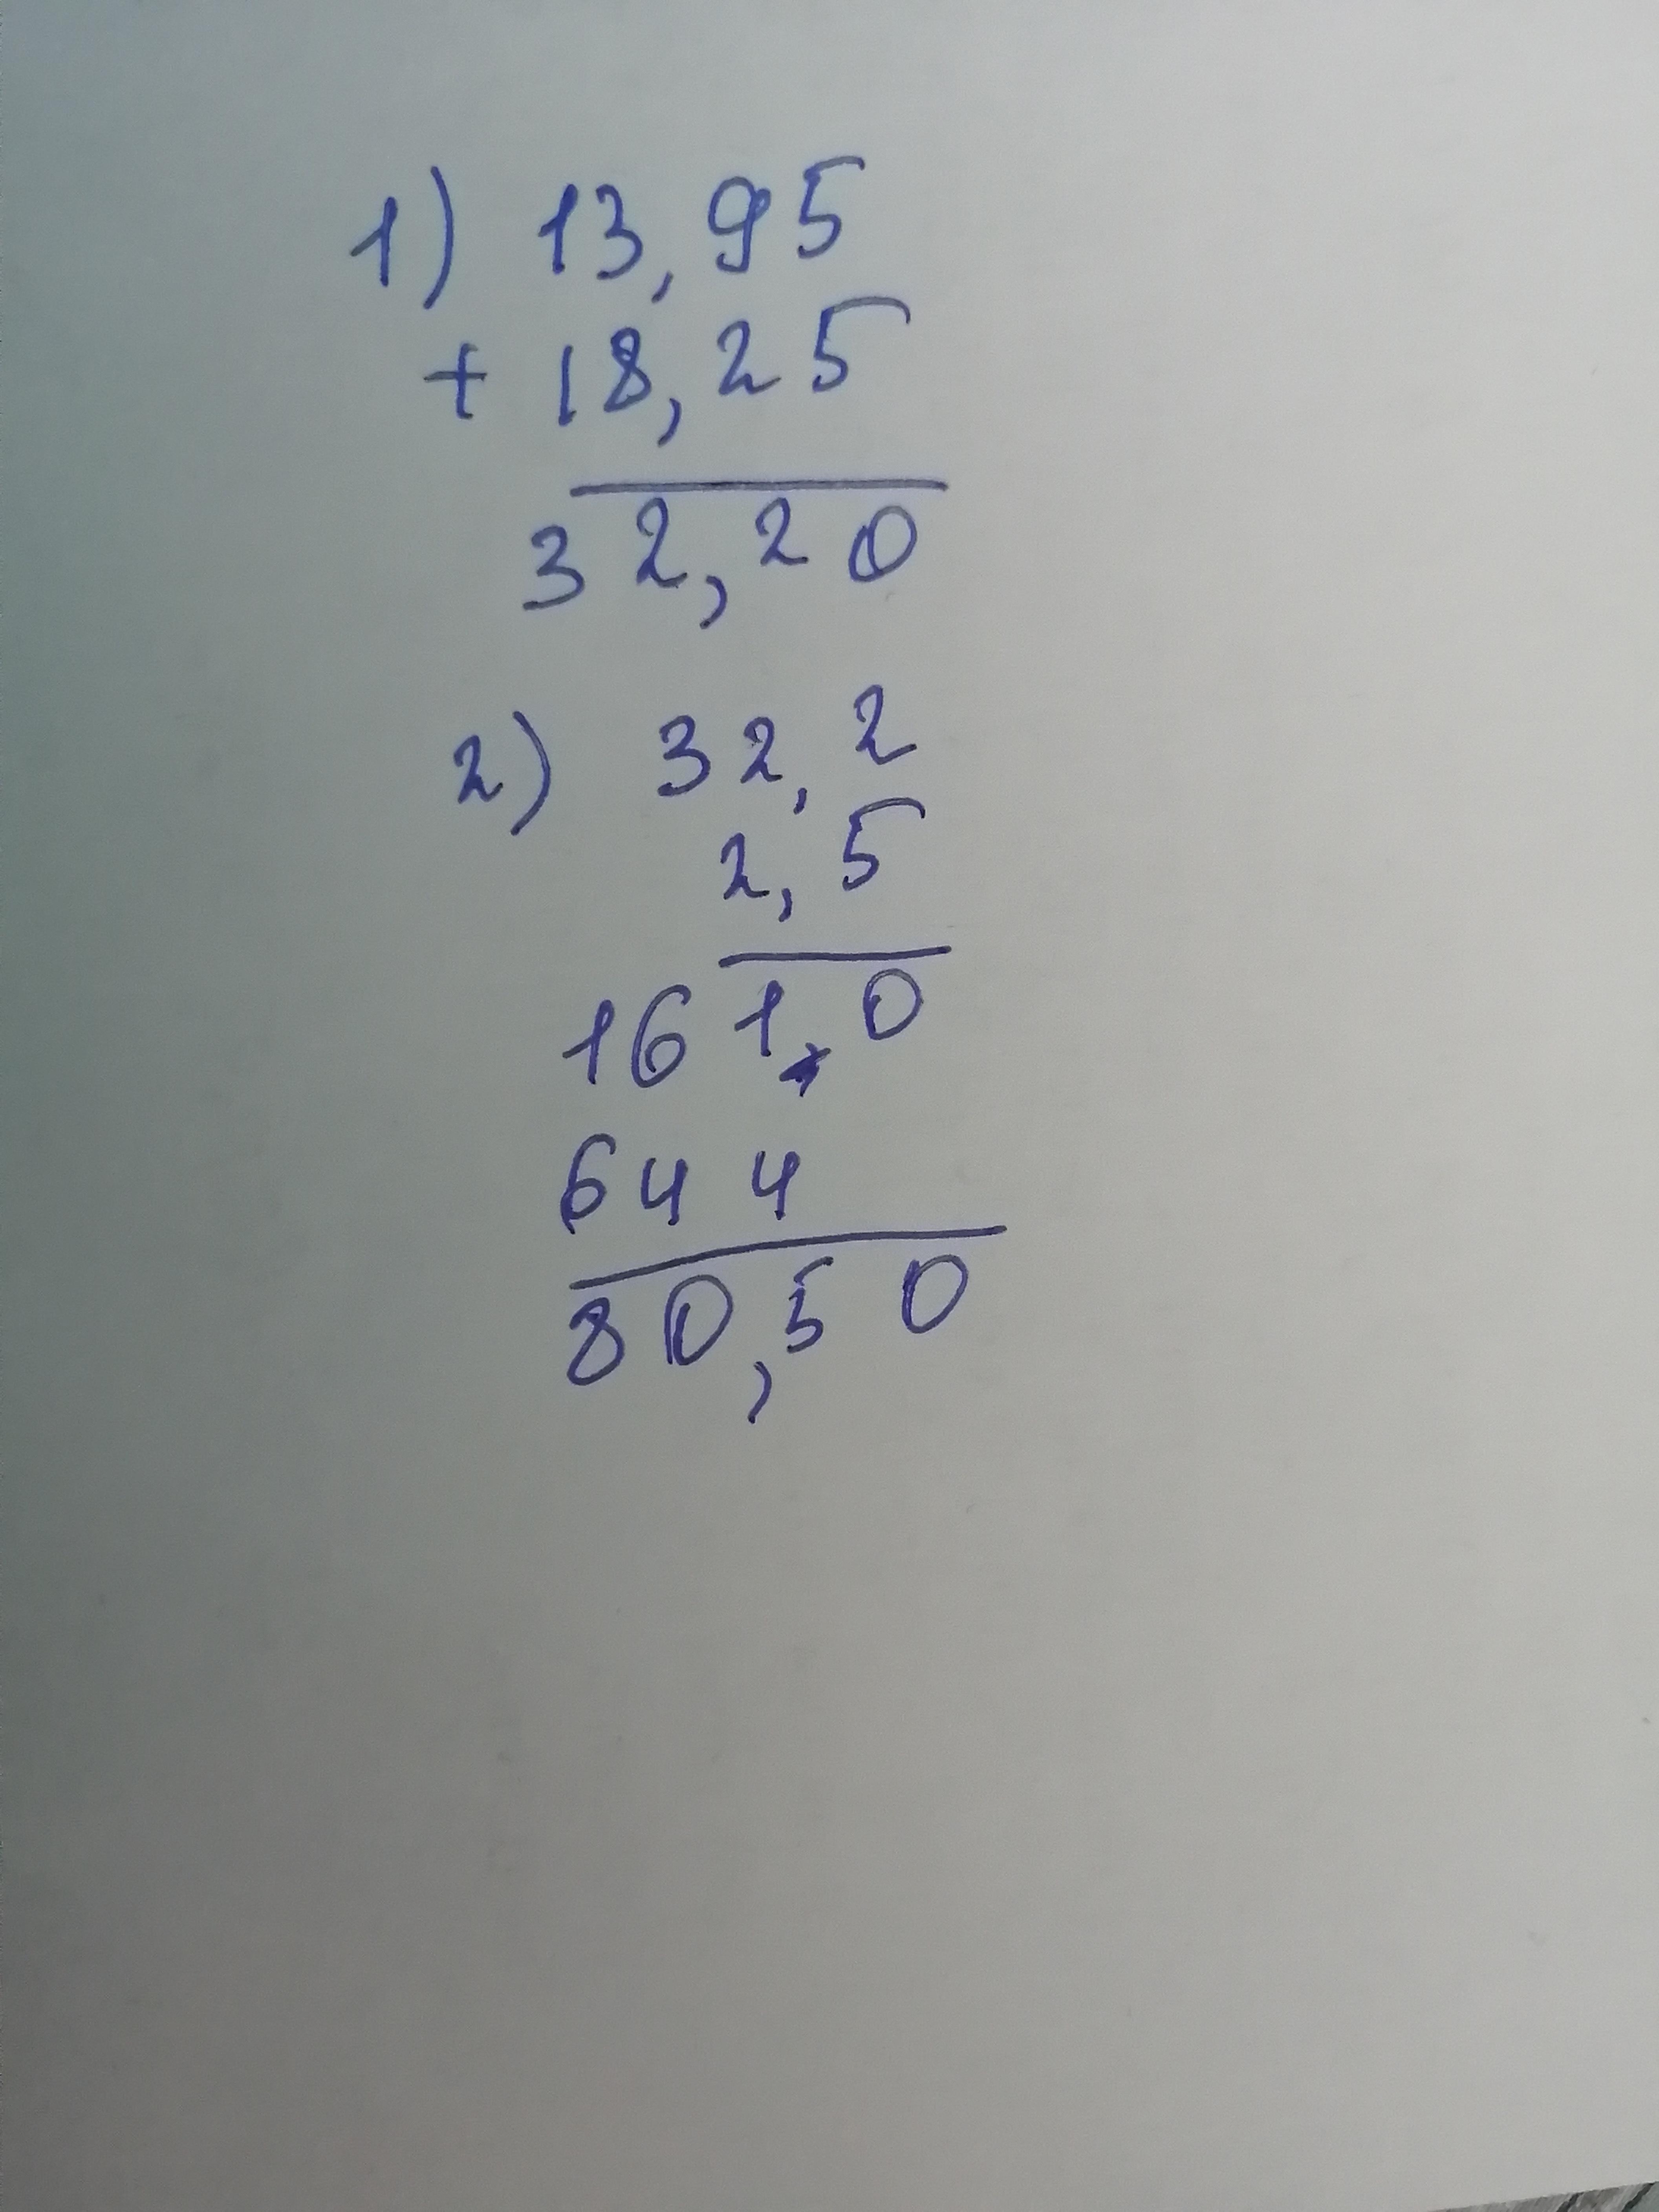 1) 13,95
+ 18,25
32,20
2) 32,2
2,5
161,0
644
80,50